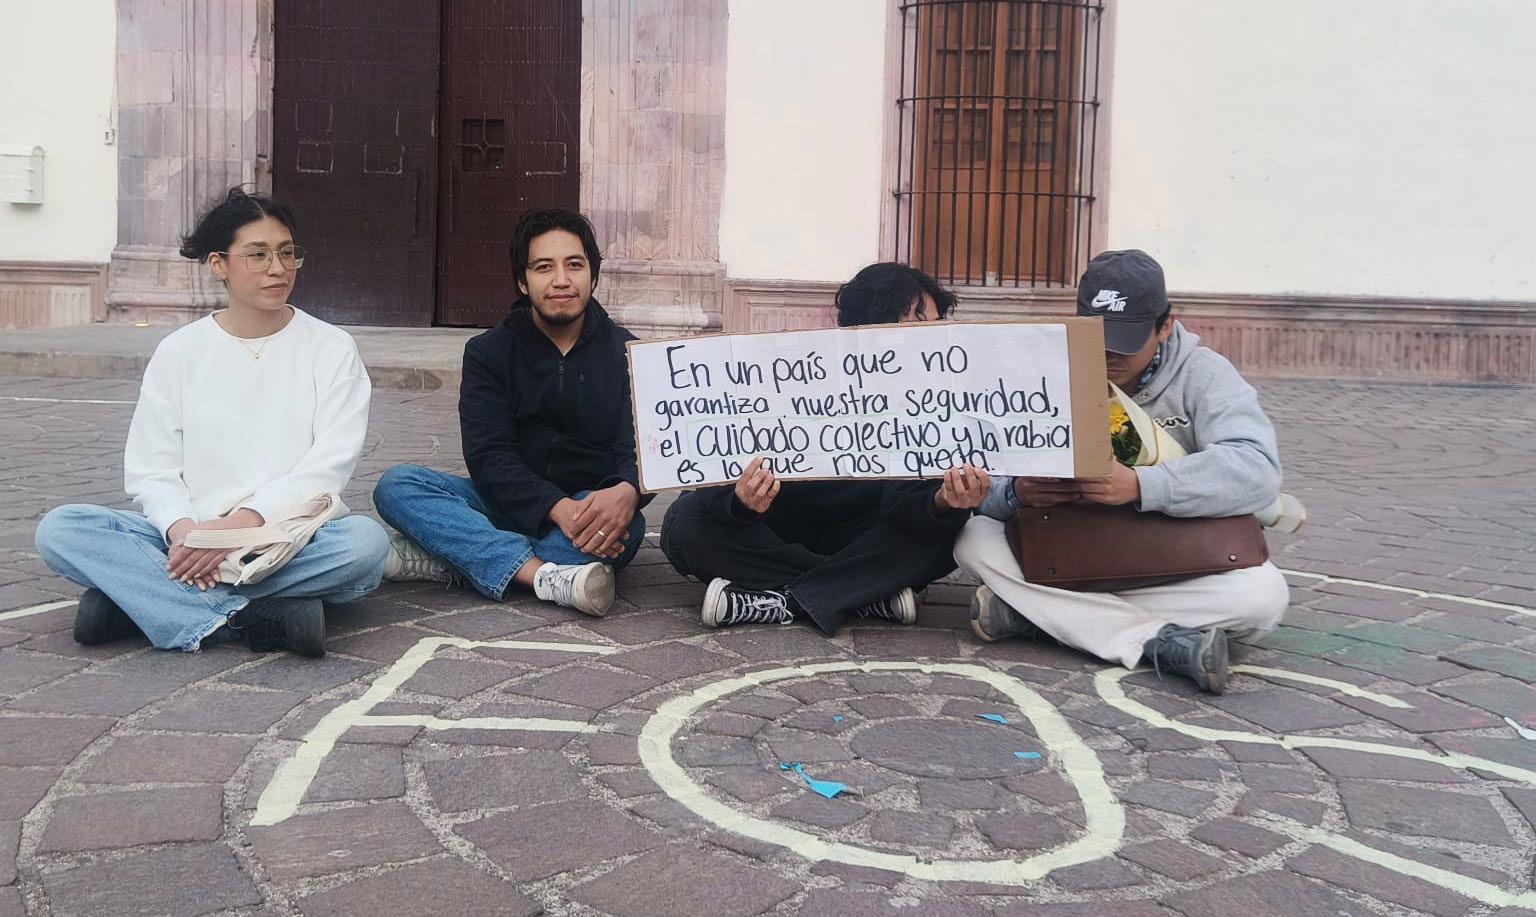 En un país que no
garantiza nuestra seguridad,
el cuidado colectivo y la rabia
es lo que nos queda.
NIKE
AIR
FOS